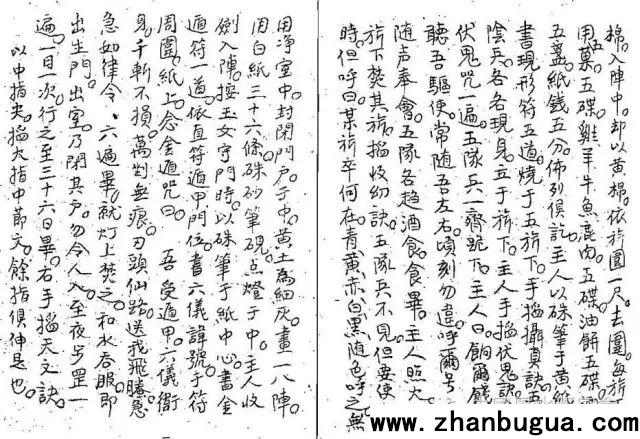 棉。入陣中。却以黄榻。依旂圍一尺。去圍。每旂
用菓五碟。雞羊牛魚鹿肉。五碟。油餅五碟。
五盞。紙錢五分。佈列俟訖。主人以硃筆于黄紙
書現形符五道。燒于五旂下。手搯攝真訣。五
陰兵。各各現身。立于旂下。主人手搯伏鬼訣。
伏鬼咒一遍。五隊兵一齊跪下。主人曰。餉爾餞
聽吾驅使。常随吾左右。頃刻勿違。呼爾号
随声奉會。五隊各趋酒食。食畢。主人照大
旂下焚其旂。搯收幼訣。五隊兵不見。但要使
時。但呼曰某旂卒何在。青黄赤白黑随色呼之。無
用净室中。封閉門户。于中。黄土為細灰。畫一八陣。
用白紙三十六條。硃砂筆硯。点燈于中。主人收
劍入陣。按玉女守門時。以硃筆于紙中心。書金
遁符一道。依直符遁甲門位。書六儀諱號于符
周圍。紙上念金遁咒曰 吾受遁甲。六儀衛
身。千斬不損。萬剉無痕。刃頭仙路。送我飛騰。急
急如律令。六遍畢。就灯上焚之。和水吞服。即
出生門。出室。乃閉其户。勿令人入。至夜步罡一
遍。一日一次。行之至三十六日畢。右手搯天文訣。
以中指尖。搯大指中節文。餘指俱伸是也。
www.zhanbugua.com